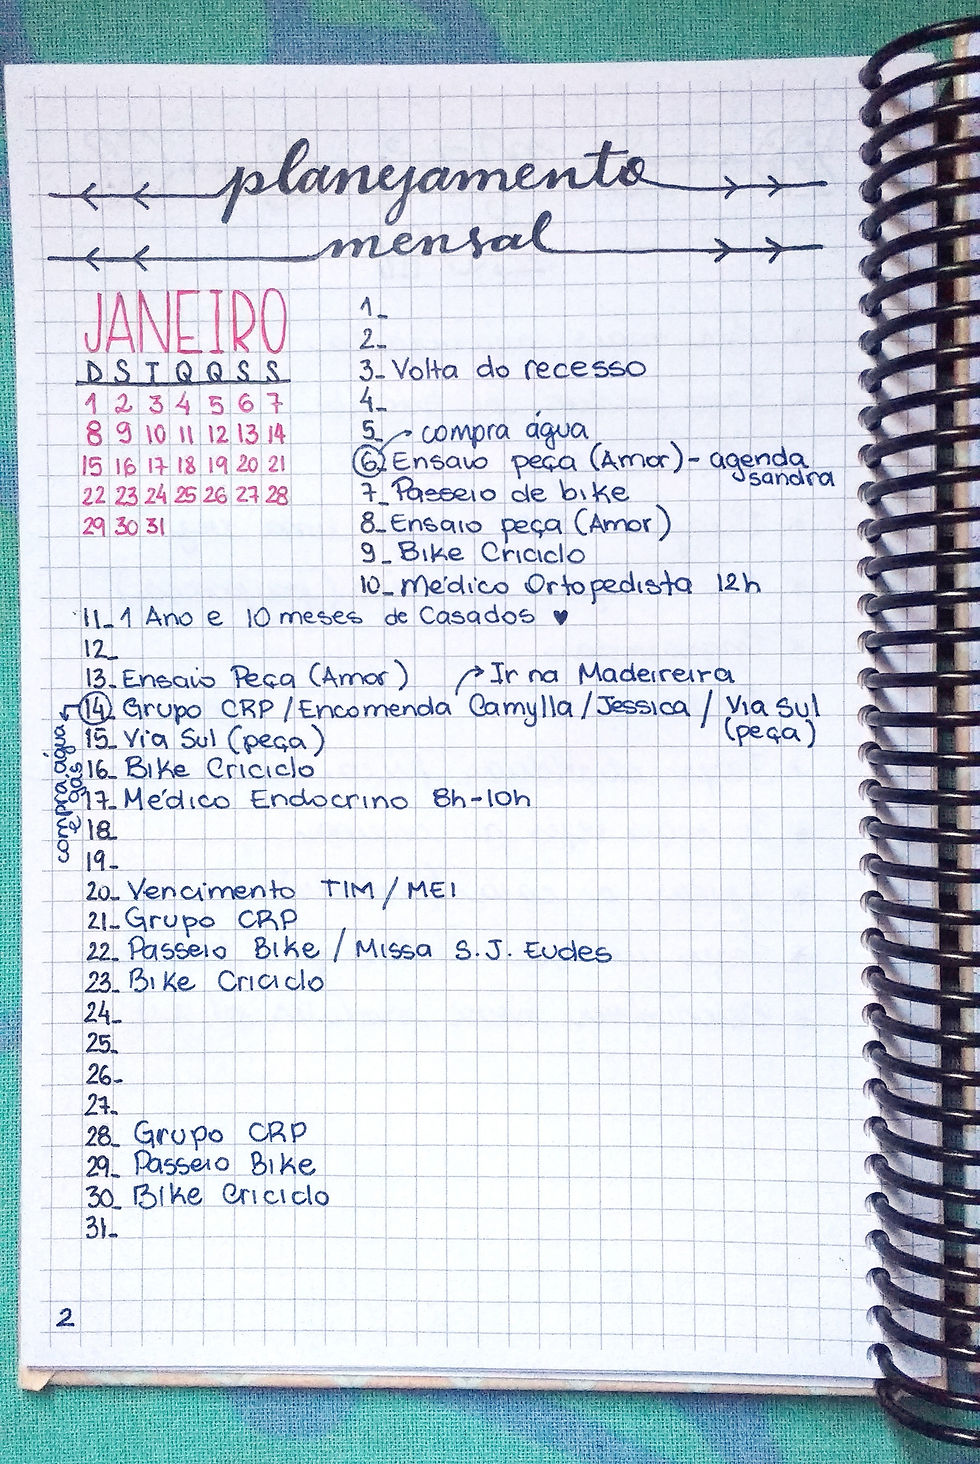 planejamento
mensal
JANEIRO
D S T Q Q S S
1 2 3 4 5 6 7
8 9 10 11 12 13 14
15 16 17 18 19 20 21
22 23 24 25 26 27 28
29 30 31
1_
2_
3_ Volta do recesso
4_
5_
compra água
6_ Ensaio peça (Amor) - agenda
sandra
7_ Passeio de bike
8_ Ensaio peça (Amor)
9_ Bike Criciclo
10_ Médico Ortopedista 12h
11_ 1 Ano e 10 meses de Casados ♥
12_
13_ Ensaio Peça (Amor)
Ir na Madeireira
14_ Grupo CRP / Encomenda Camylla / Jessica / Via Sul
(peça)
compra água
e gás
15_ Via Sul (peça)
16_ Bike Criciclo
17_ Médico Endocrino 8h-10h
18_
19_
20_ Vencimento TIM / MEI
21_ Grupo CRP
22_ Passeio Bike / Missa S.J. Eudes
23_ Bike Criciclo
24_
25_
26_
27_
28_ Grupo CRP
29_ Passeio Bike
30_ Bike Criciclo
31_
2